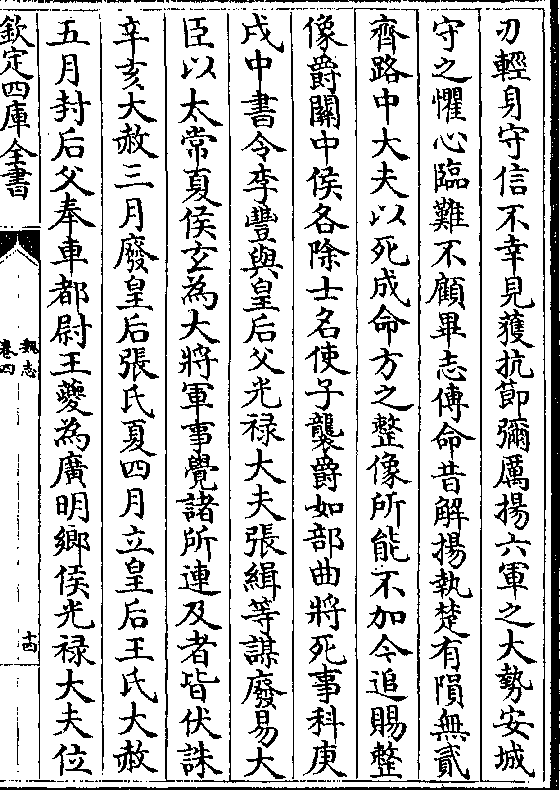 刃輕身守信不幸見獲抗節彌厲揚六軍之大勢安城
守之懼心臨難不顧畢志傳命昔解揚執楚有隕無貳
齊路中大夫以死成命方之整像所能不加今追賜整
像爵關中侯各除士名使子襲爵如部曲將死事科庚
戌中書令李豐與皇后父光禄大夫張緝等謀廢易大
臣以太常夏侯玄為大將軍事覺諸所連及者皆伏誅
辛亥大赦三月廢皇后張氏夏四月立皇后王氏大赦
五月封后父奉車都尉王夔為廣明鄉侯光禄大夫位
欽定四庫全書
魏志
卷四
十四